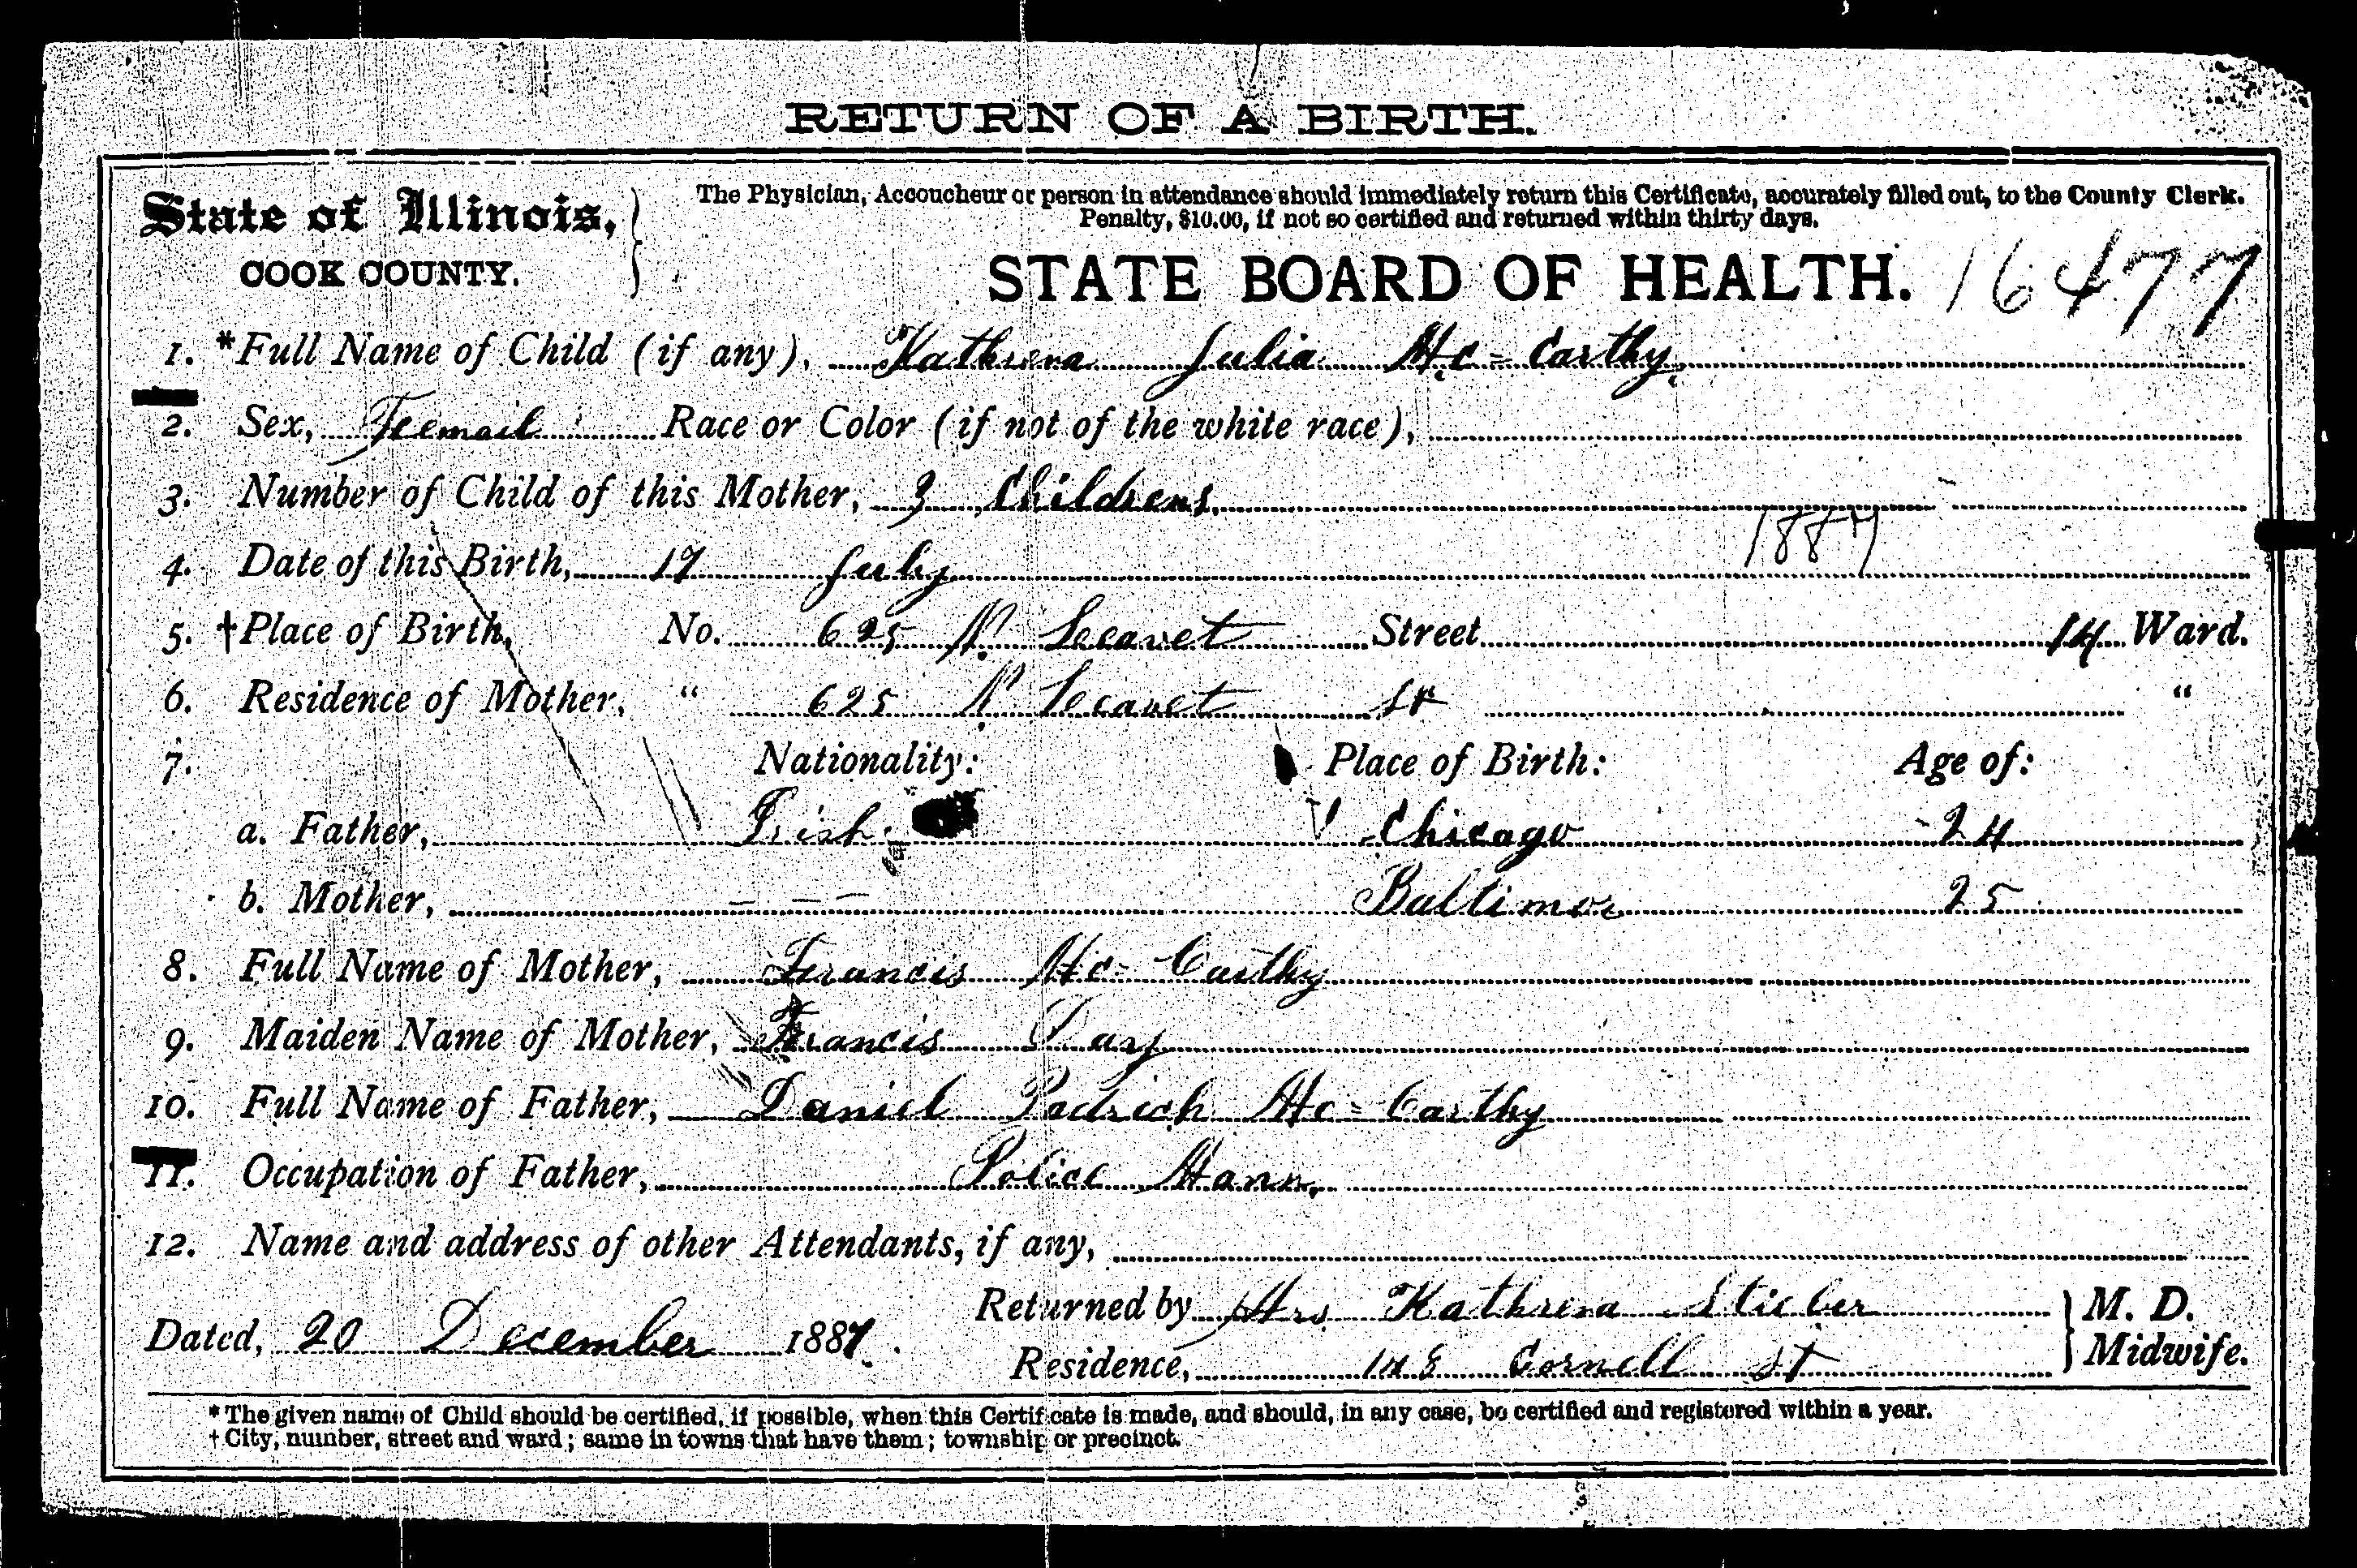 RETURN OF A BIRTH.
State of Illinois,
COOK COUNTY.
The Physician, Accoucheur or person in attendance should immediately return this Certificate, accurately filled out, to the County Clerk.
Penalty, $10.00, if not so certified and returned within thirty days.
STATE BOARD OF HEALTH. 16477
1. *Full Name of Child (if any), Kathrena Julia Mc=Carthy
2. Sex, Feemail Race or Color (if not of the white race),
3. Number of Child of this Mother, 3 Childrens.
4. Date of this Birth, 17 July 1887
5. †Place of Birth, No. 625 N. Street 14 Ward.
6. Residence of Mother, " 625 N. St "
7. Nationality: Place of Birth: Age of:
a. Father, Irish Chicago 24
b. Mother, - - - Baltimor 25
8. Full Name of Mother, Francis Mc=Carthy
9. Maiden Name of Mother, Francis Day
10. Full Name of Father, Daniel Padrich Mc=Carthy
11. Occupation of Father, Police Mann,
12. Name and address of other Attendants, if any,
Dated, 20 December 1887.
Returned by Mrs Kathrena Stieber M. D.
Residence, Cornell St Midwife.
* The given name of Child should be certified, if possible, when this Certificate is made, and should, in any case, be certified and registered within a year.
† City, number, street and ward; same in towns that have them; township or precinct.